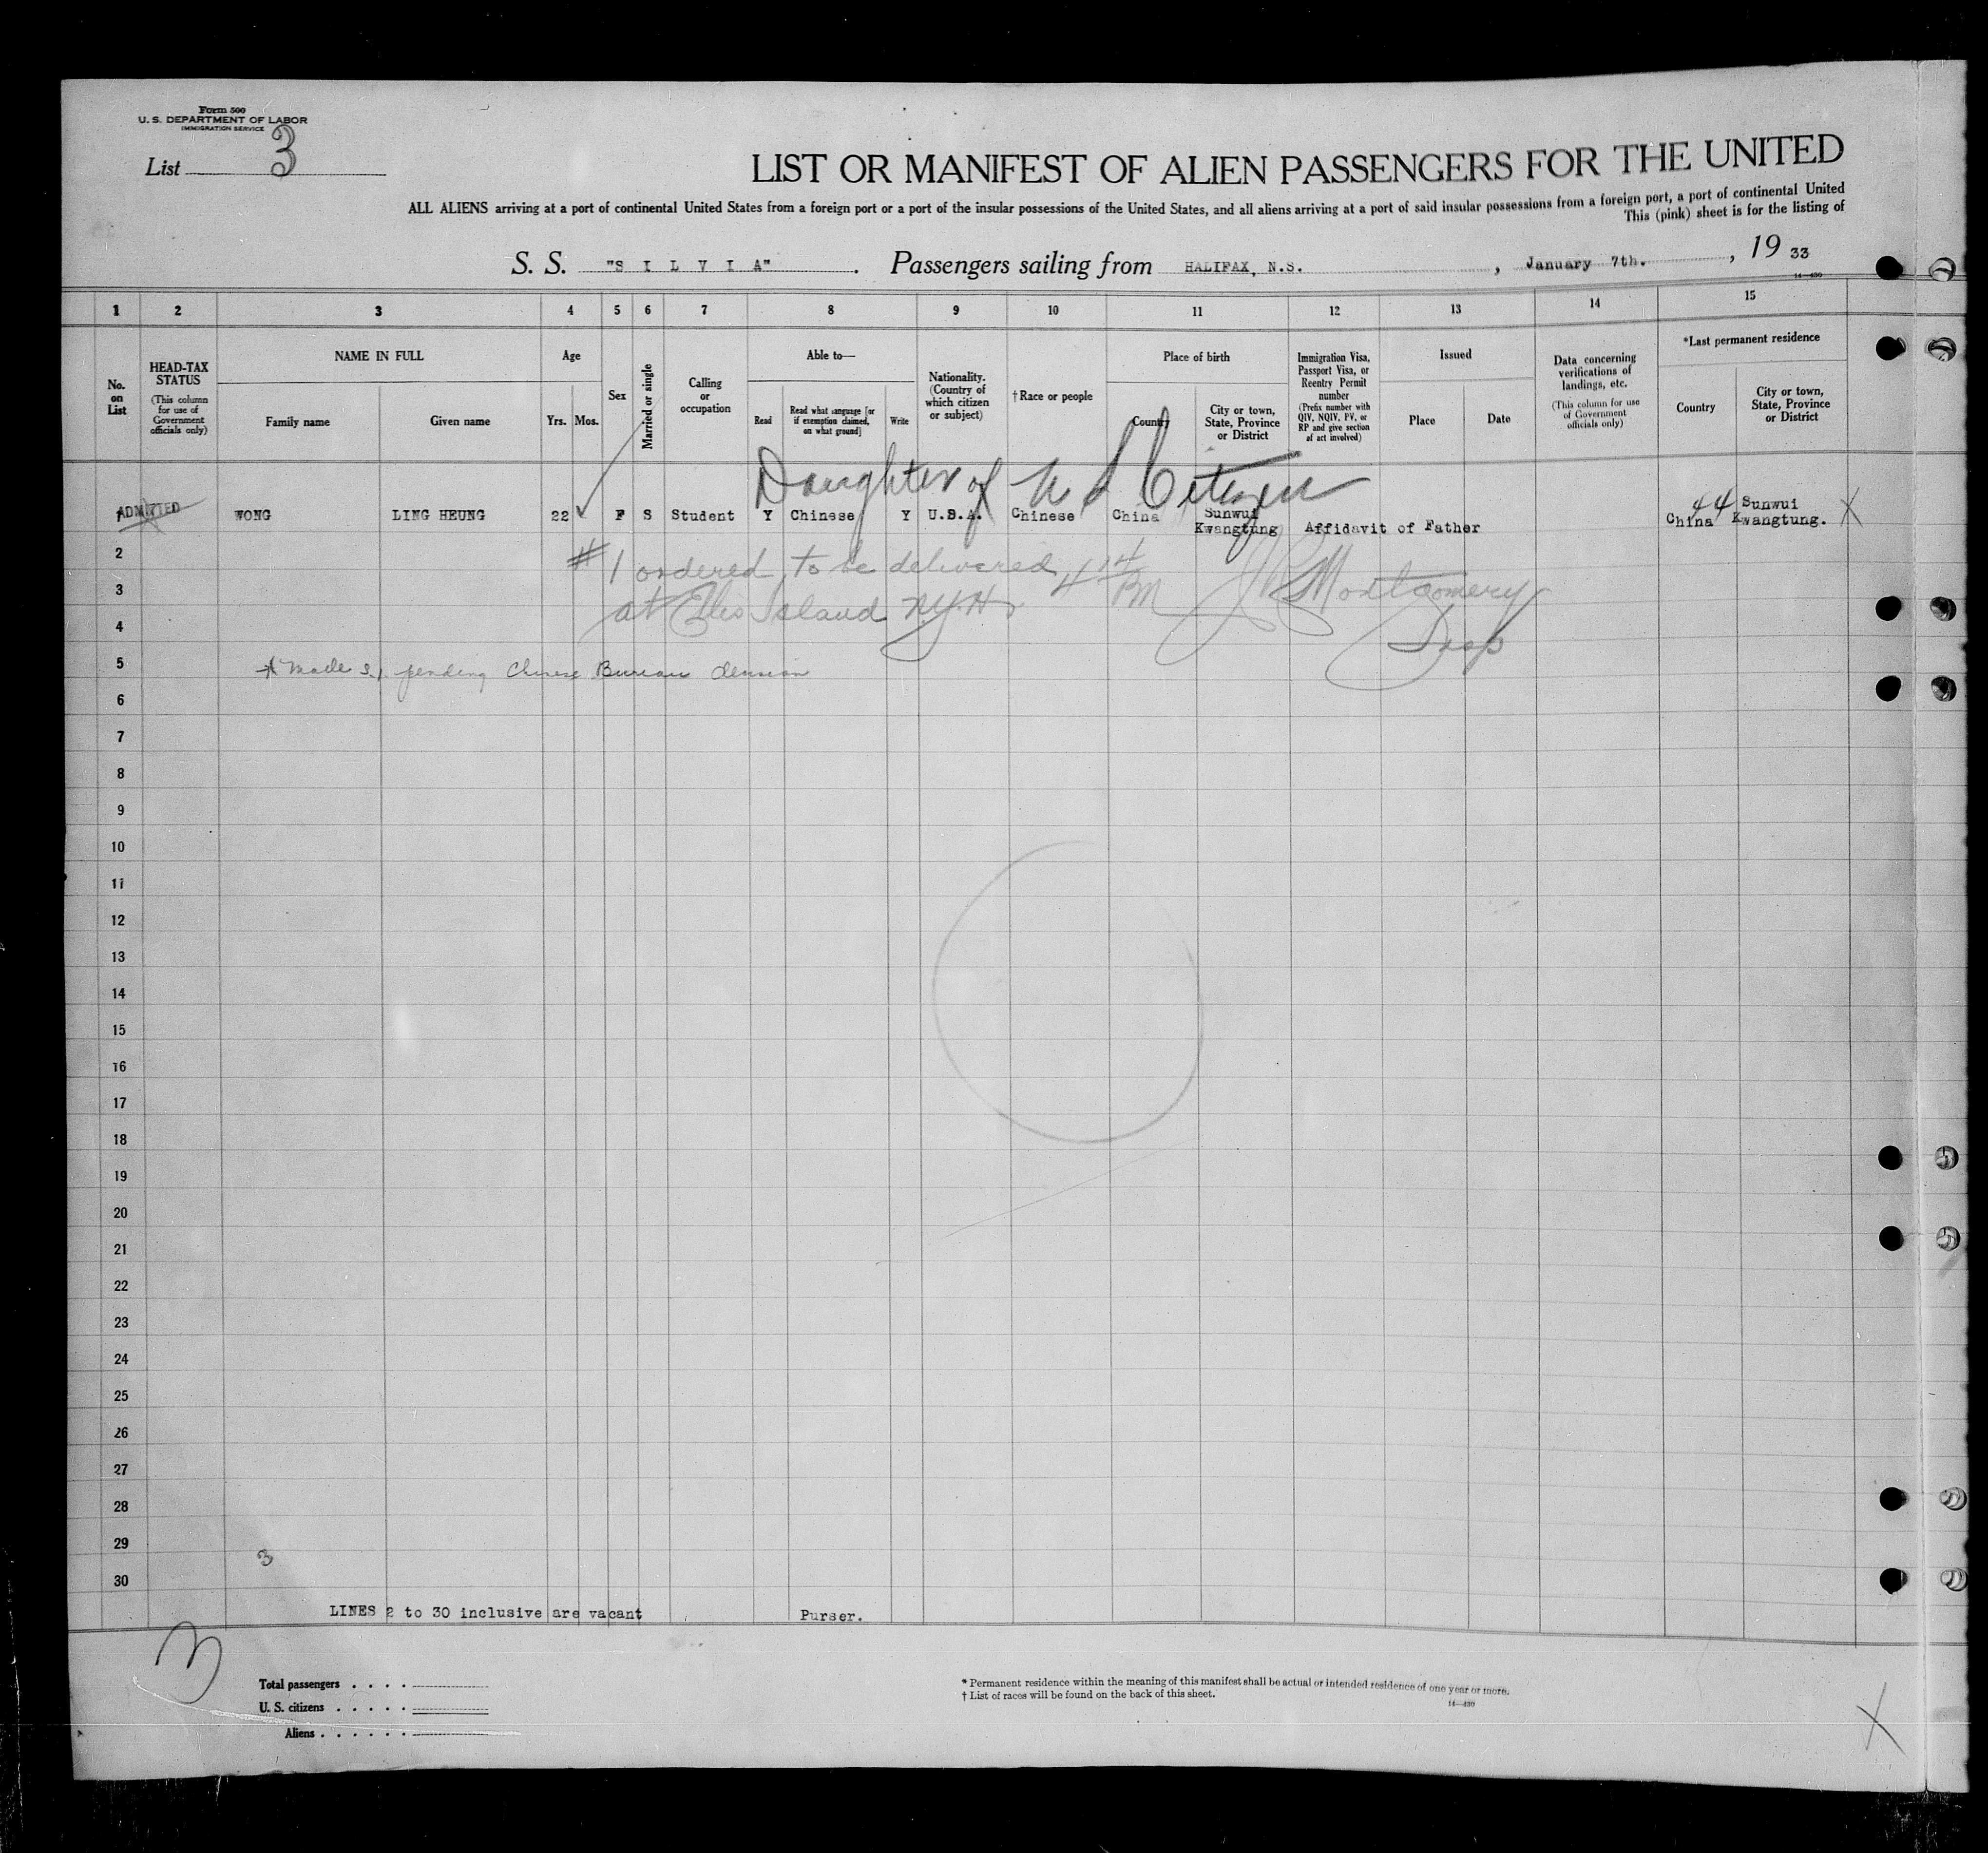 Form 500
U. S. DEPARTMENT OF LABOR
IMMIGRATION SERVICE
List 3
LIST OR MANIFEST OF ALIEN PASSENGERS FOR THE UNITED
ALL ALIENS arriving at a port of continental United States from a foreign port or a port of the insular possessions of the United States, and all aliens arriving at a port of said insular possessions from a foreign port, a port of continental United
This (pink) sheet is for the listing of
S. S. "S I L V I A" . Passengers sailing from HALIFAX, N.S. , January 7th. , 19 33
14—430
1 2 3 4 5 6 7 8 9 10 11 12 13 14 15
No. on List
HEAD-TAX STATUS (This column for use of Government officials only)
NAME IN FULL
Family name Given name
Age
Yrs. Mos.
Sex
Married or single
Calling or occupation
Able to—
Read Read what language [or if exemption claimed, on what ground] Write
Nationality. (Country of which citizen or subject)
† Race or people
Place of birth
Country City or town, State, Province or District
Immigration Visa, Passport Visa, or Reentry Permit number (Prefix number with QIV, NQIV, PV, or RP and give section of act involved)
Issued
Place Date
Data concerning verifications of landings, etc. (This column for use of Government officials only)
*Last permanent residence
Country City or town, State, Province or District
Daughter of U S Citizen
ADMITTED
1 WONG LING HEUNG 22 ✓ F S Student Y Chinese Y U.S.A. Chinese China Sunwui Kwangtung Affidavit of Father 44 China Sunwui Kwangtung. X
2 #1 ordered to be delivered
3 at Ellis Island N.Y.H. JR Montgomery
4 Insp
5 * Made S.I. pending Chinese Bureau decision
6
7
8
9
10
11
12
13
14
15
16
17
18
19
20
21
22
23
24
25
26
27
28
29
3
30
LINES 2 to 30 inclusive are vacant Purser.
3
Total passengers . . . .
U. S. citizens . . . . .
Aliens . . . . . .
* Permanent residence within the meaning of this manifest shall be actual or intended residence of one year or more.
† List of races will be found on the back of this sheet.
14—430
X